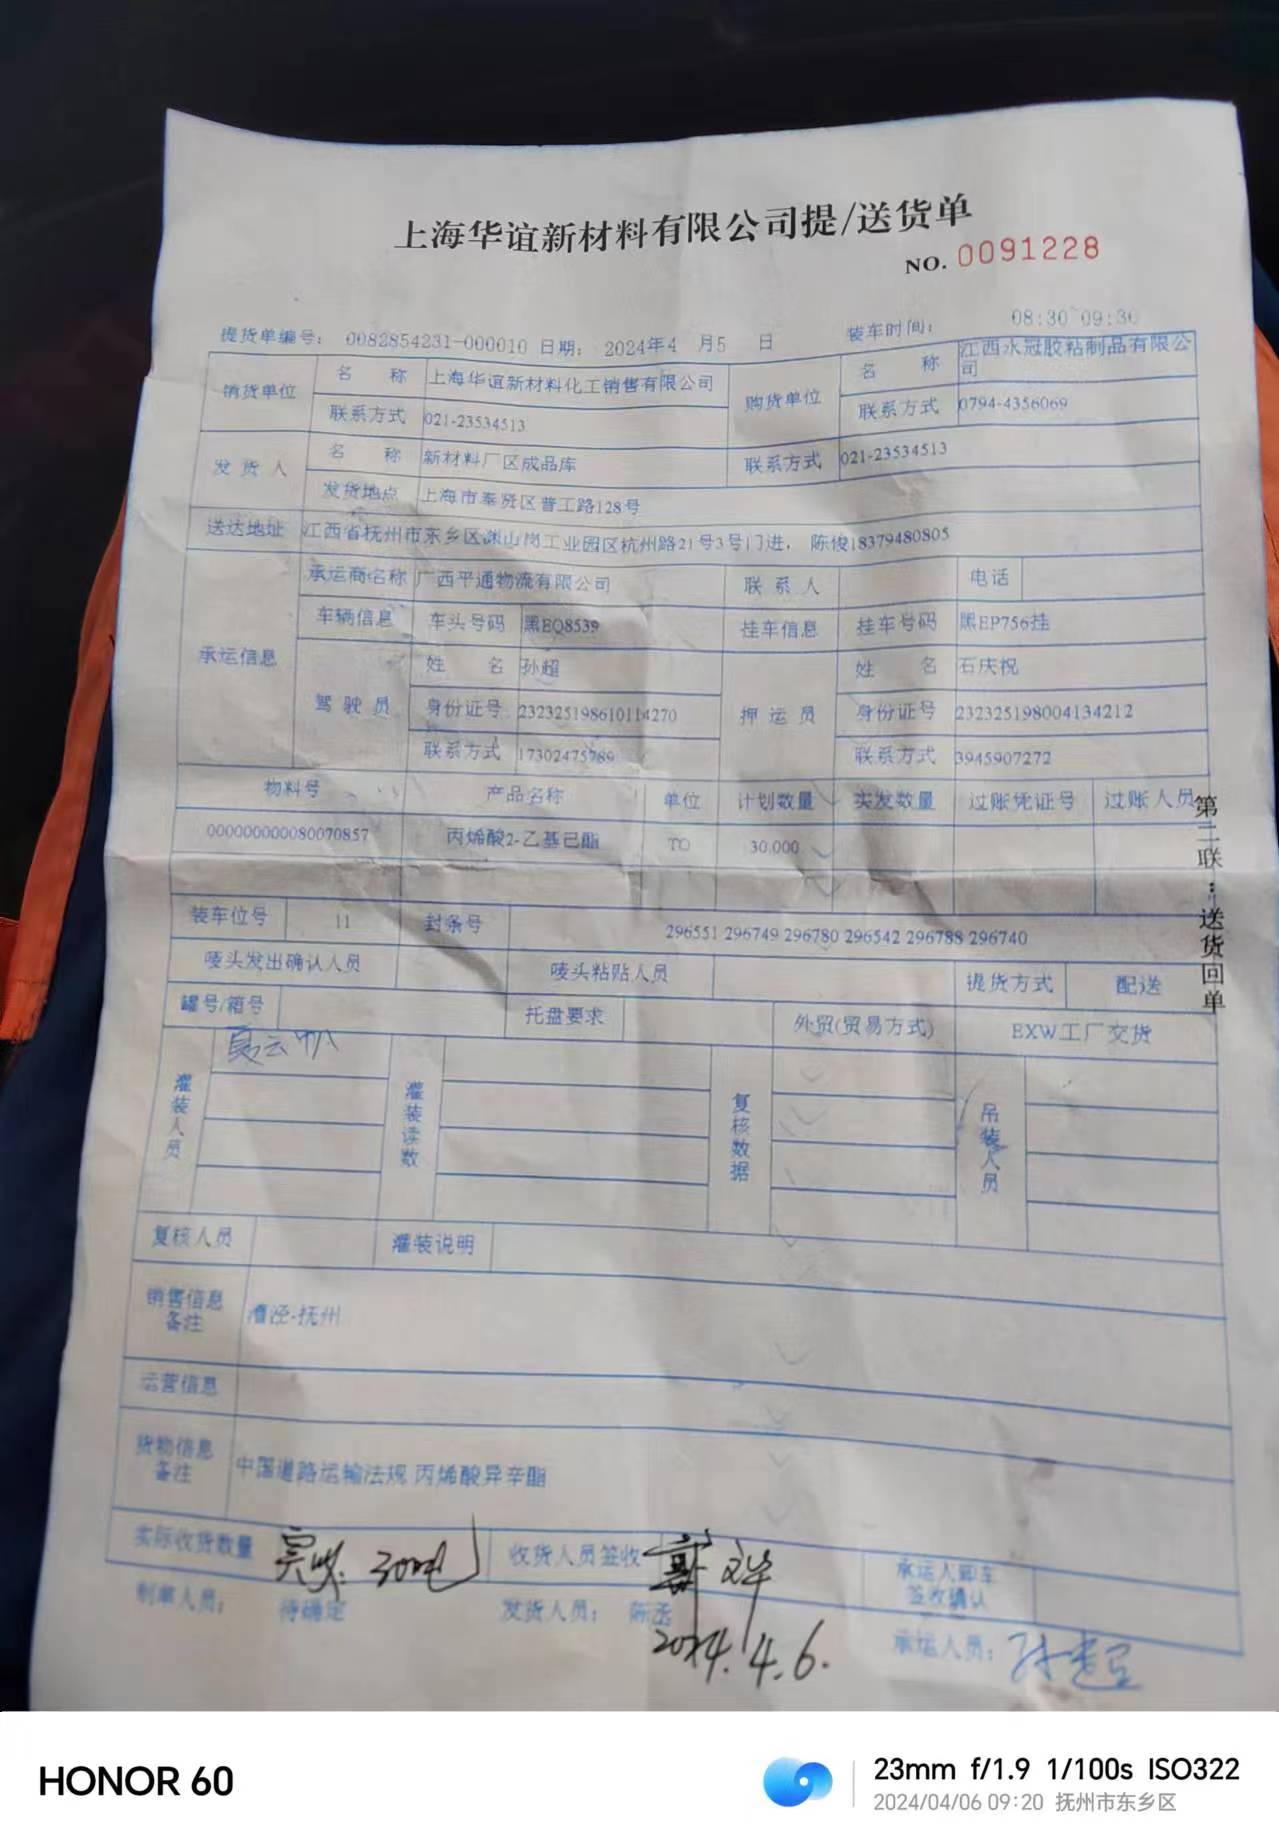 上海华谊新材料有限公司提/送货单
NO. 0091228
提货单编号： 0082854231-000010 日期： 2024年4 月5 日 装车时间： 08:30~09:30
销货单位 名 称 上海华谊新材料化工销售有限公司 购货单位 名 称 江西永冠胶粘制品有限公司
联系方式 021-23534513 联系方式 0794-4356069
发 货 人 名 称 新材料厂区成品库 联系方式 021-23534513
发货地点 上海市奉贤区普工路128号
送达地址 江西省抚州市东乡区渊山岗工业园区杭州路21号3号门进， 陈俊18379480805
承运信息 承运商名称 广西平通物流有限公司 联 系 人 电话
车辆信息 车头号码 黑EQ8539 挂车信息 挂车号码 黑EP756挂
驾 驶 员 姓 名 孙超 押 运 员 姓 名 石庆祝
身份证号 232325198610114270 身份证号 232325198004134212
联系方式 17302475789 联系方式 3945907272
物料号 产品名称 单位 计划数量 实发数量 过账凭证号 过账人员
000000000080070857 丙烯酸2-乙基己酯 TO 30.000
装车位号 11 封条号 296551 296749 296780 296542 296788 296740
唛头发出确认人员 唛头粘贴人员 提货方式 配送
罐号/箱号 托盘要求 外贸(贸易方式) EXW工厂交货
灌装人员 灌装读数 复核数据 吊装人员
复核人员 灌装说明
销售信息备注 漕泾-抚州
运营信息
货物信息备注 中国道路运输法规 丙烯酸异辛酯
实际收货数量 30吨 收货人员签收 承运人卸车签收确认
制单人员： 待确定 发货人员： 陈丞 承运人员： 孙超
2024.4.6.
第二联：送货回单
HONOR 60
23mm f/1.9 1/100s ISO322
2024/04/06 09:20 抚州市东乡区